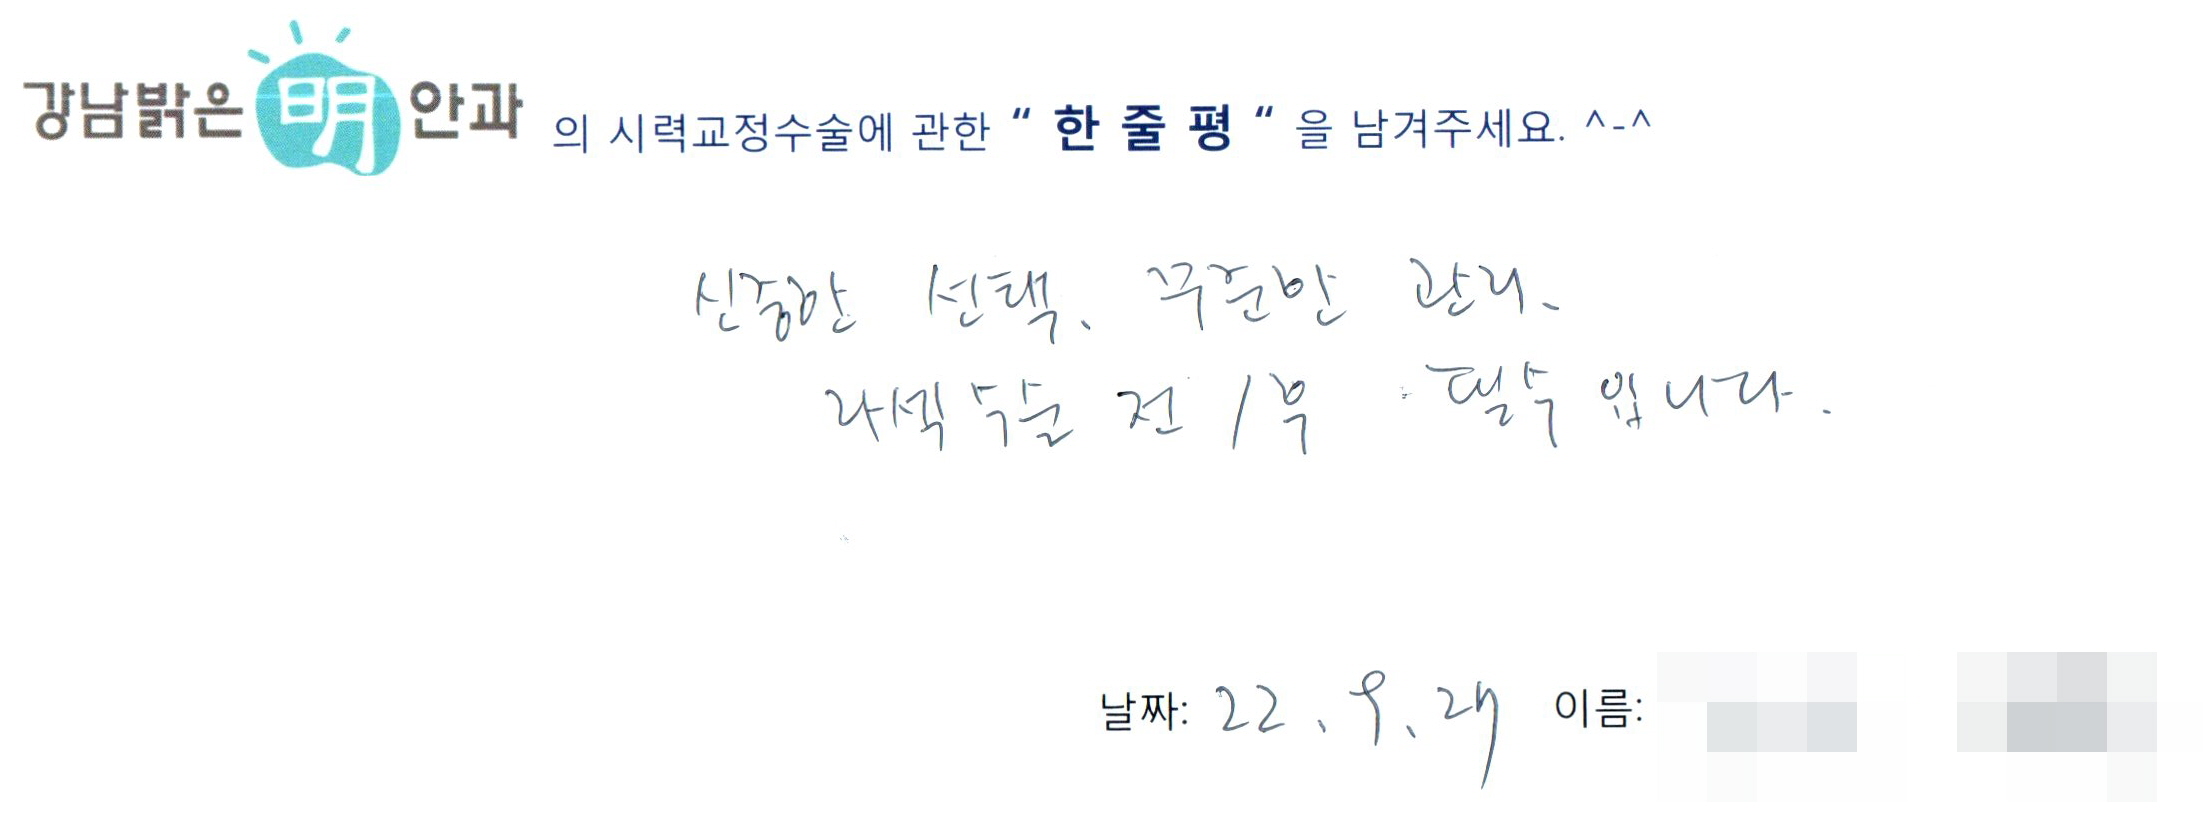 강남밝은 明 안과 의 시력교정수술에 관한 “ 한 줄 평 “ 을 남겨주세요. ^-^
신중한 선택. 꾸준한 관리.
라섹수술 전 / 후 필수 입니다.
날짜: 22. 9. 24 이름: